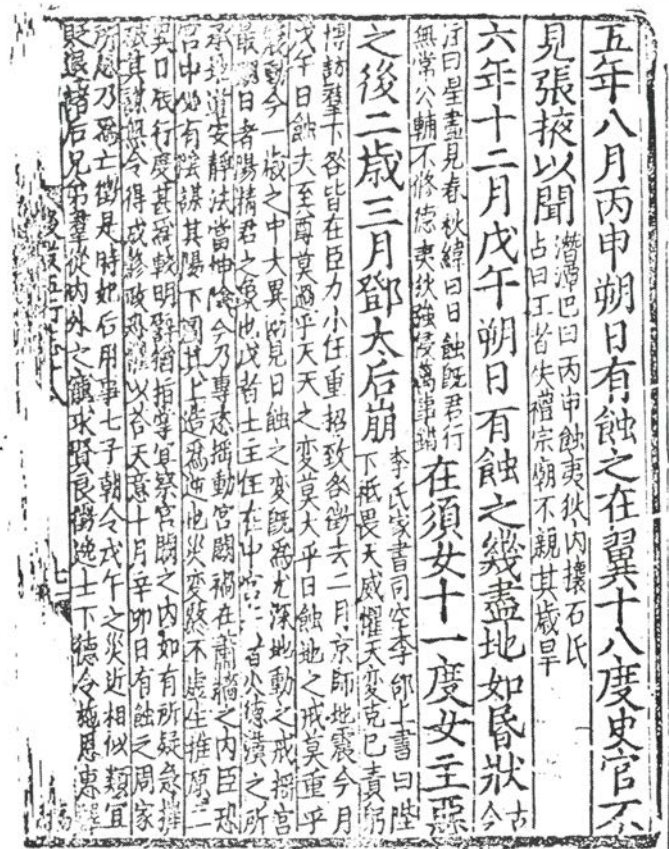 五年八月丙申朔日有蝕之在翼十八度史官不
見張掖以聞潛潭巴曰丙申蝕夷狄內攘石氏
占曰王者失禮宗廟不親其歲旱
六年十二月戊午朔日有蝕之幾盡地如昏狀古
今
注曰星盡見春秋緯曰日蝕既君行
無常公輔不修德夷狄強侵萬事錯在須女十一度女主惡
之後二歲三月鄧太后崩李氏家書司空李郃上書曰陛
下祗畏天威懼天變克己責躬
博訪羣下咎皆在臣力小任重招致咎徵去二月京師地震今月
戊午日蝕夫至尊莫過乎天天之變莫大乎日蝕地之戒莫重乎
震動今一歲之中大異兩見日蝕之變既為尤深地動之戒搖宮
最醜日者陽精君之象也戊者土主任在中宮者火德漢之所
承地道安靜法當坤陰今乃專恣搖動宮闕禍在蕭牆之內臣恐
宮中必有陰謀其陽下圖其上造為逆也災變終不虛生推原二
異日辰行度甚為較明譬猶指掌宜察宮闕之內如有所疑急摧
破其謀無令得成修政恐懼以荅天意十月辛卯日有蝕之周家
所忌乃為亡徵是時妃后用事七子朝令戊午之災近相似類宜
貶退諸后兄弟羣從內外之寵求賢良徵逸士下德令施恩惠澤